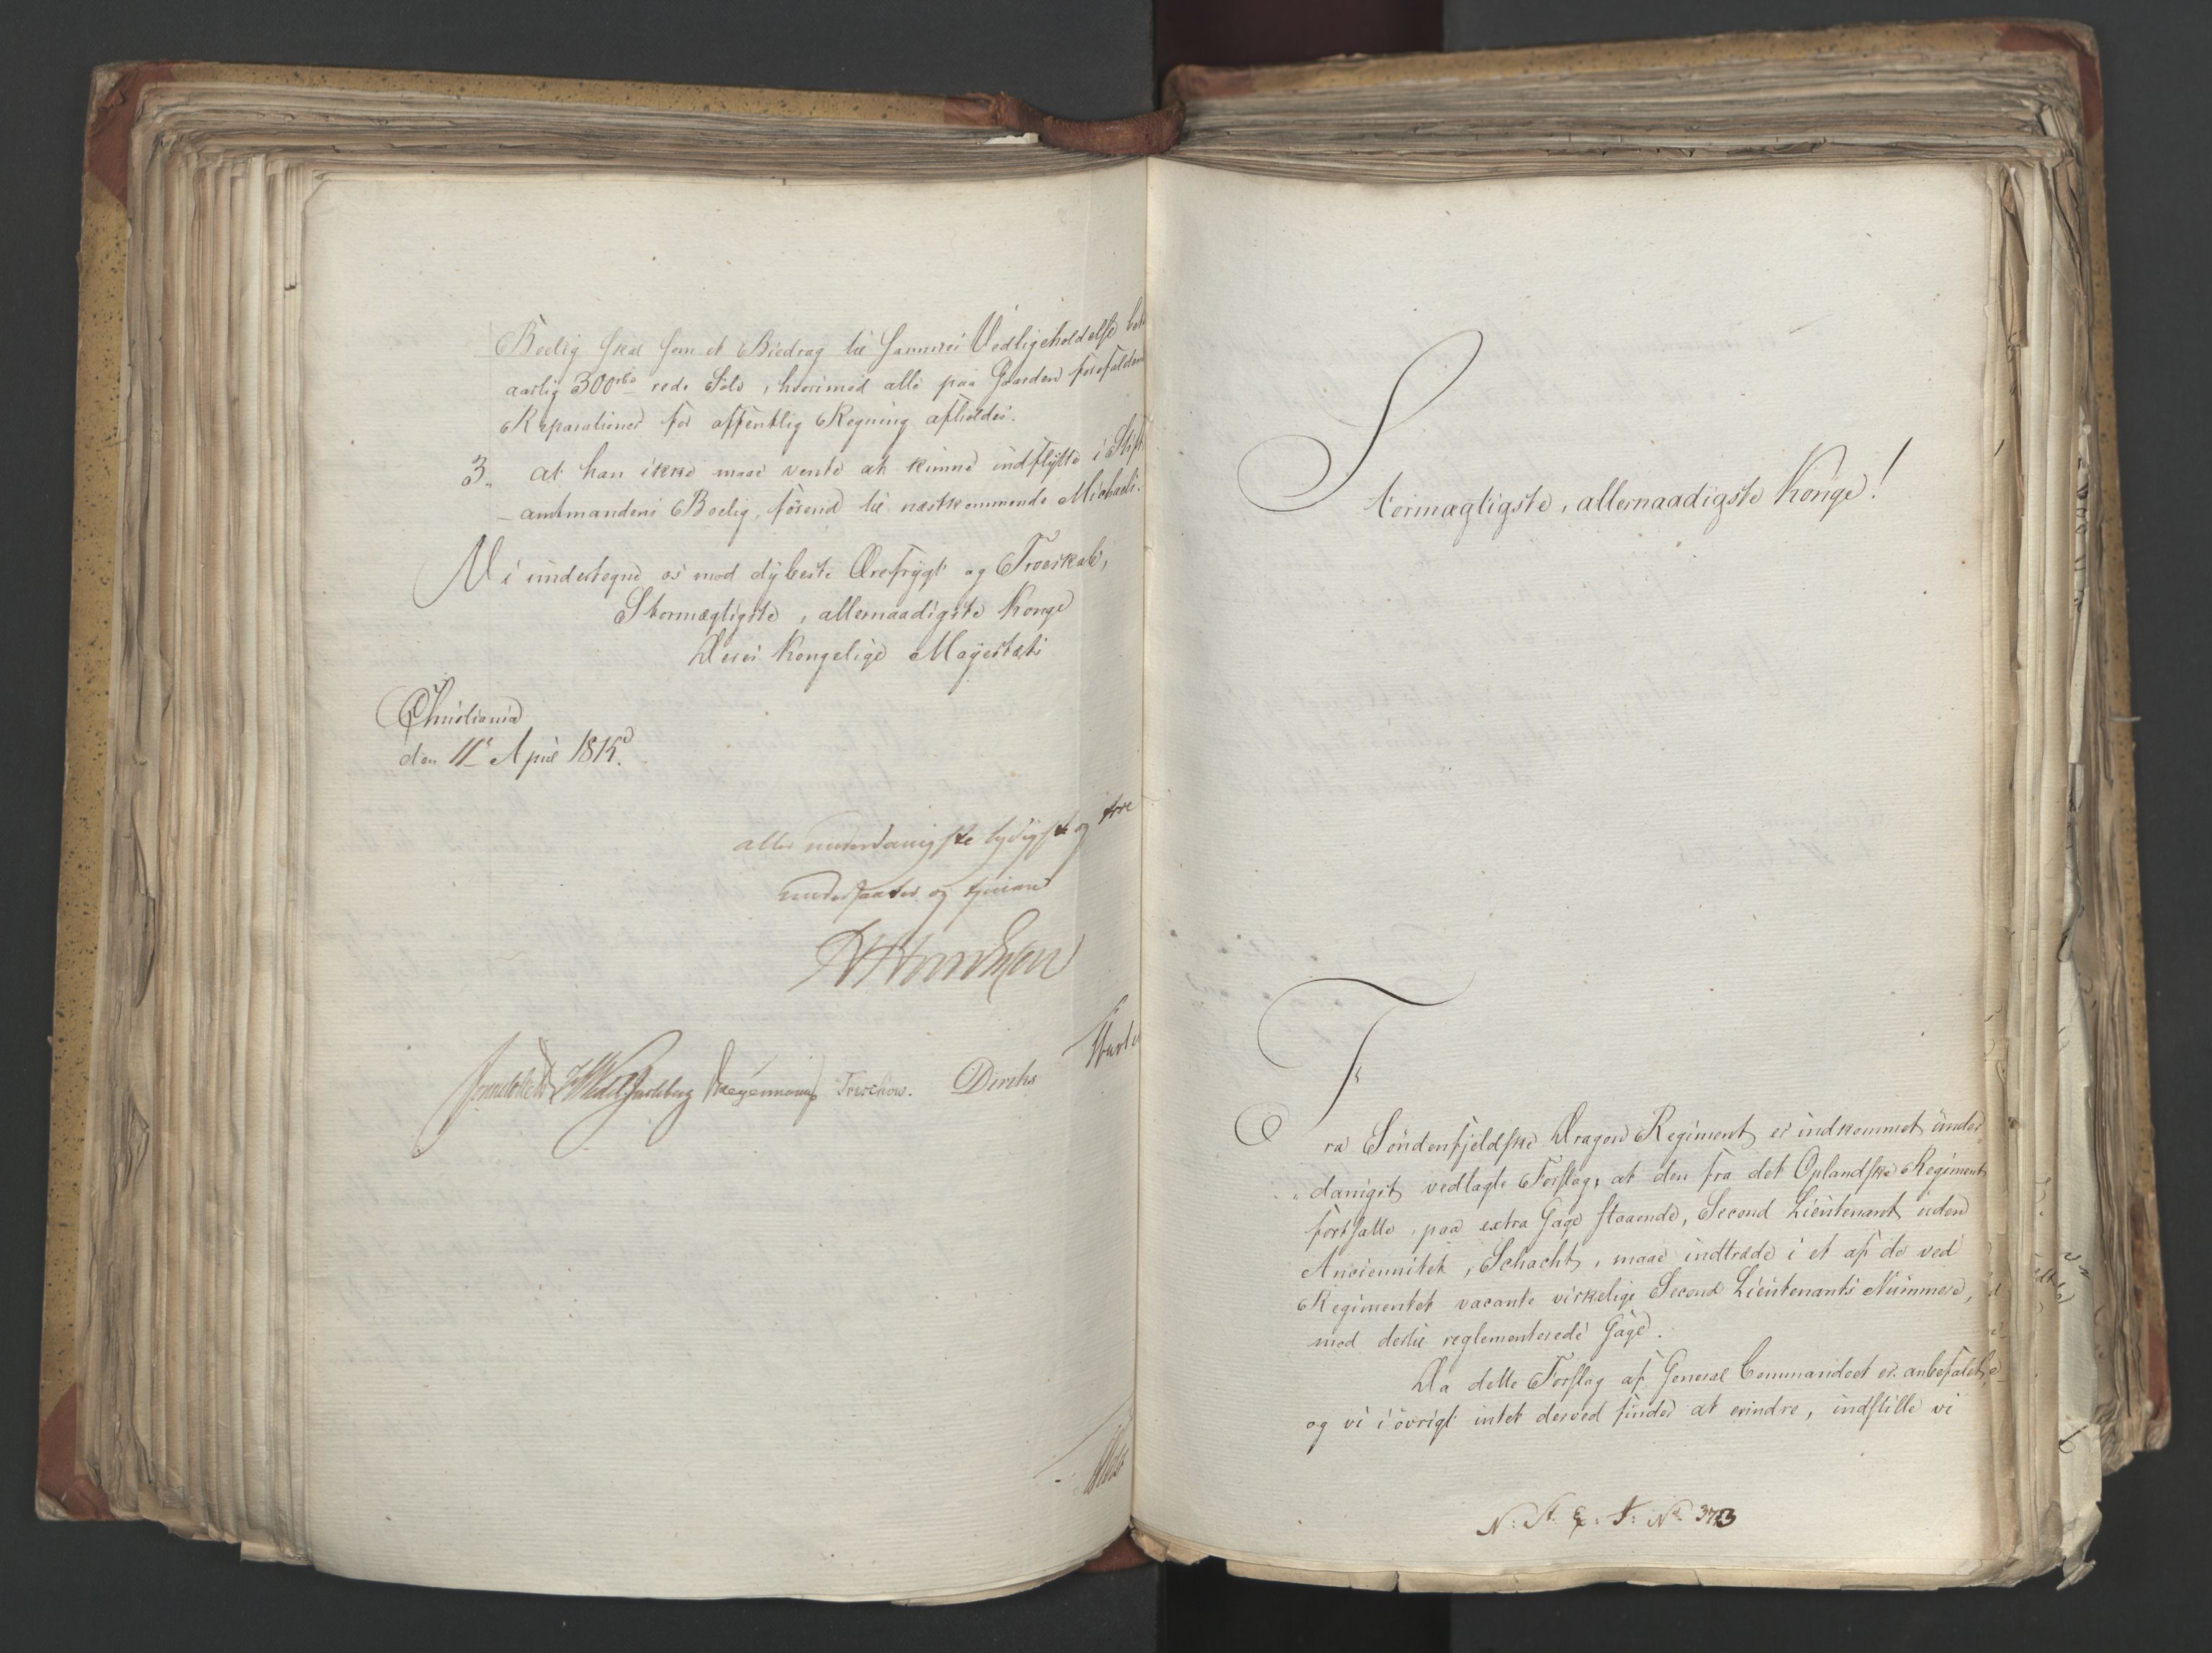 Boelig skal som et Biedrag til sammes Vedligeholdelse
aarlig 300 rbd rede Sølv, hvorimod alle paa Gaarden forefaldene
Reparationer for offentlig Regning afholdes.
3. at han ikke maae vente at kunne indflytte i Stift
-amtmandens Boelig, förend til næstkommende Michaeli.
Vi undertegne os med dybeste Ærefrygt og Troeskab,
Stormægtigste, allernaadigste Konge
Deres Kongelige Majestæts
Christiania
den 11te April 1815.
aller underdanigste lydigste og troe
undersaatter og tjenere
Sommerhielm Wedel Jarlsberg Hegermann Treschow. Diriks
Stormægtigste, allernaadigste Konge!
Fra Söndenfjeldske Dragon Regiment er indkommet under
danigst vedlagte Forslag, at den fra det Oplandske Regiment
forsatte, paa extra Gage staaende, Second Lieutenant uden
Anciennitet, Schacht, maae indtræde i et af de ved
Regimentet vacante virkelige Second Lieutenants Nummere,
med dertil reglementerede Gage.
Da dette Forslag af General Commandoet er anbefalet,
og vi i övrigt intet derved finder at erindre, indstille vi
N: St. Ex: J: No 373